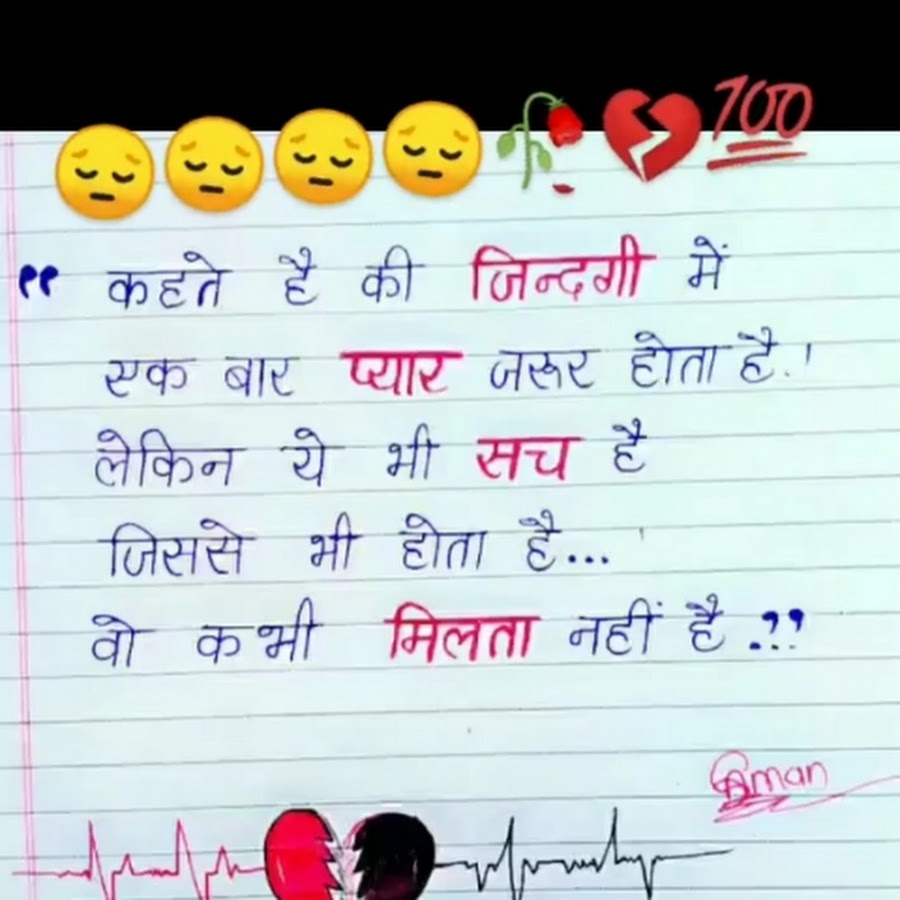 💯
“ कहते है की जिन्दगी में
एक बार प्यार जरूर होता है.!
लेकिन ये भी सच है
जिससे भी होता है...
वो कभी मिलता नहीं है .”
Aman